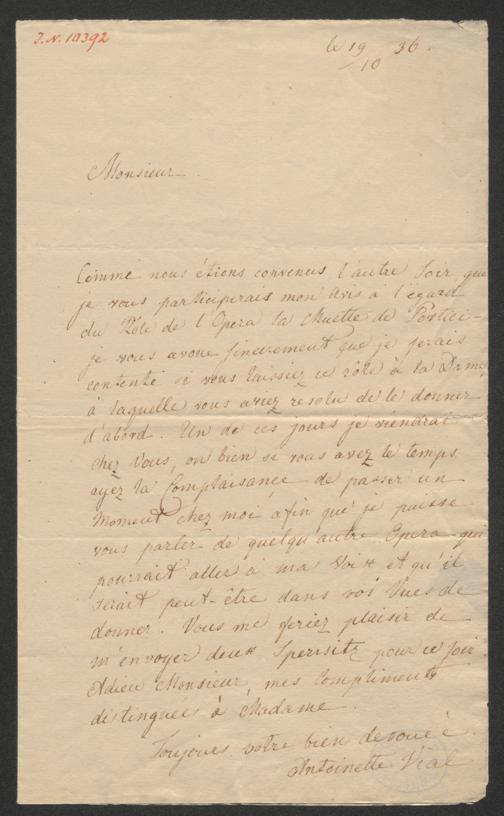 J.N. 10392
le 19/10 36.
Monsieur
Comme nous étions convenus l'autre soir que
je vous participerais mon Avis à l'égard
du Rôle de l'Opera la Muette de Portici
je vous avoue sincerement que je serais
contente si vous laissiez ce rôle à la Dame,
à laquelle vous aviez resolu de le donner
d'abord. Un de ces jours je viendrai
chez Vous, ou bien si vous avez le temps
ayez la Complaisance de passer un
Moment chez moi, afin que je puisse
vous parler de quelqu'autre Opera qui
pourrait aller à ma Voix et qu'il
serait peut-être dans vos Vues de
donner. Vous me feriez plaisir de
m'envoyer deux Sperrsitz pour ce soir
Adieu Monsieur, mes Compliments
distingués à Madame.
Toujours votre bien devouée
Antoinette Vial